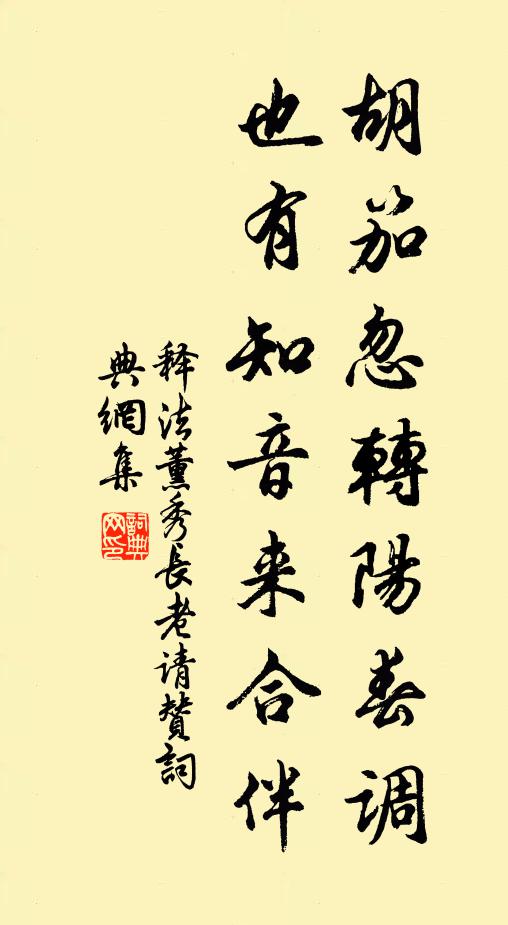 胡笳忽轉陽春调
也有知音来合伴
释法薰秀长老请赞詞
典網集
詞典网印